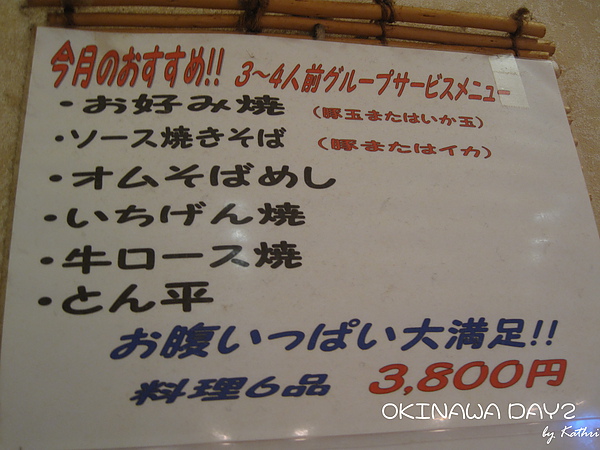 今月のおすすめ!! 3〜4人前グループサービスメニュー
・お好み焼 (豚玉またはいか玉)
・ソース焼きそば (豚またはイカ)
・オムそばめし
・いちげん焼
・牛ロース焼
・とん平
お腹いっぱい大満足!!
料理6品 3,800円
OKINAWA DAY2
by Kathri